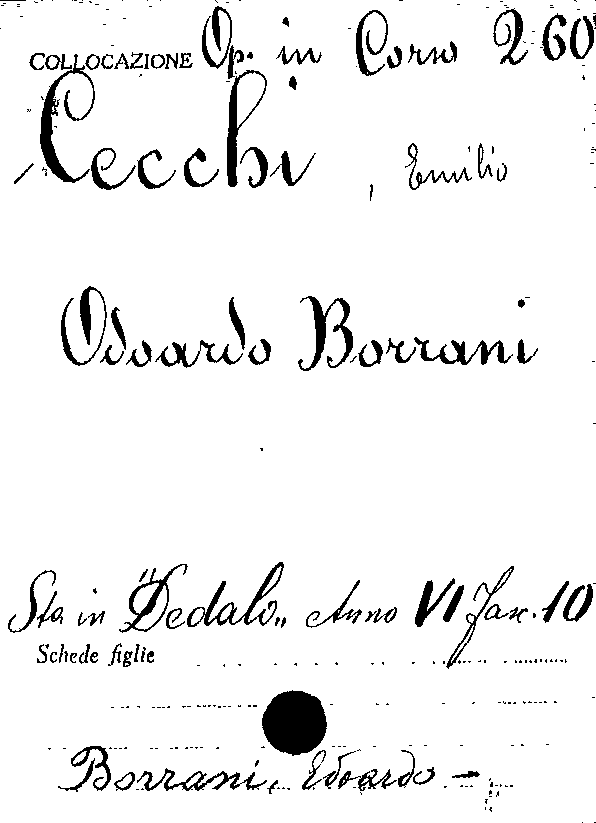 COLLOCAZIONE Op. in Corso 260
Cecchi, Emilio
Odoardo Borrani
Sta in "Dedalo„ Anno VI Fasc. 10
Schede figlie
Borrani, Edoardo -